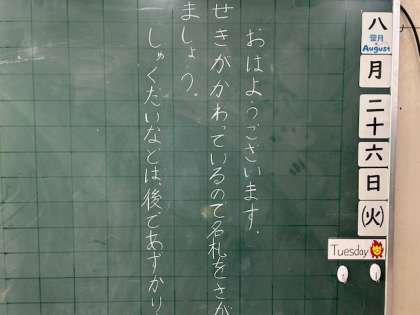 八
葉月
August
月
二十六
日
(火)
Tuesday
おはようございます.
せきがかわっているので名札をさが
ましょう.
しゅくだいなどは、後であずかり